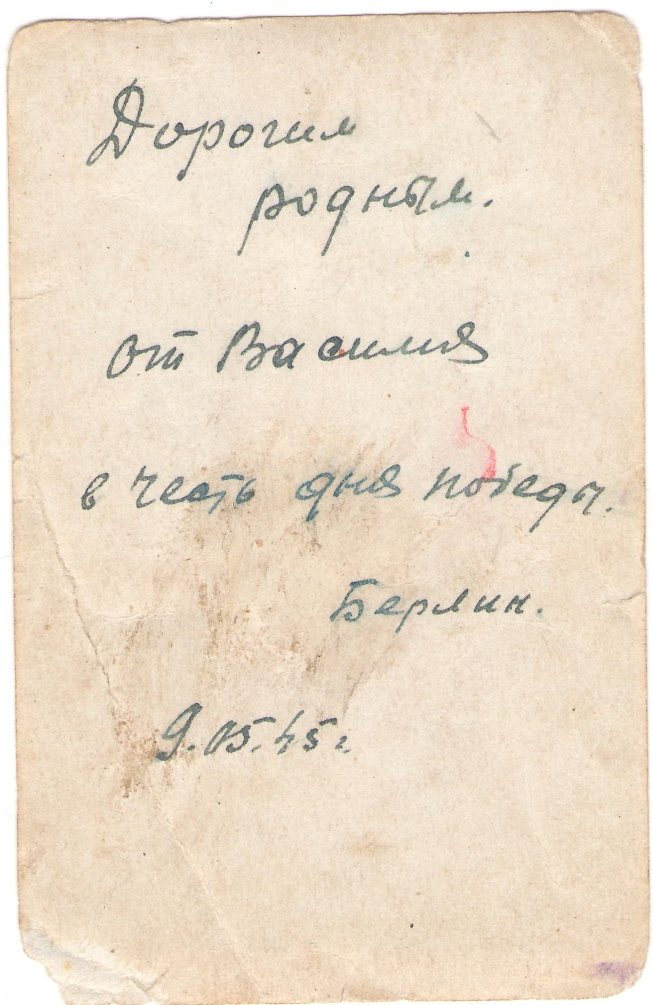 Дорогим
родным.
от Василия
в честь дня победы.
Берлин.
9.05.45г